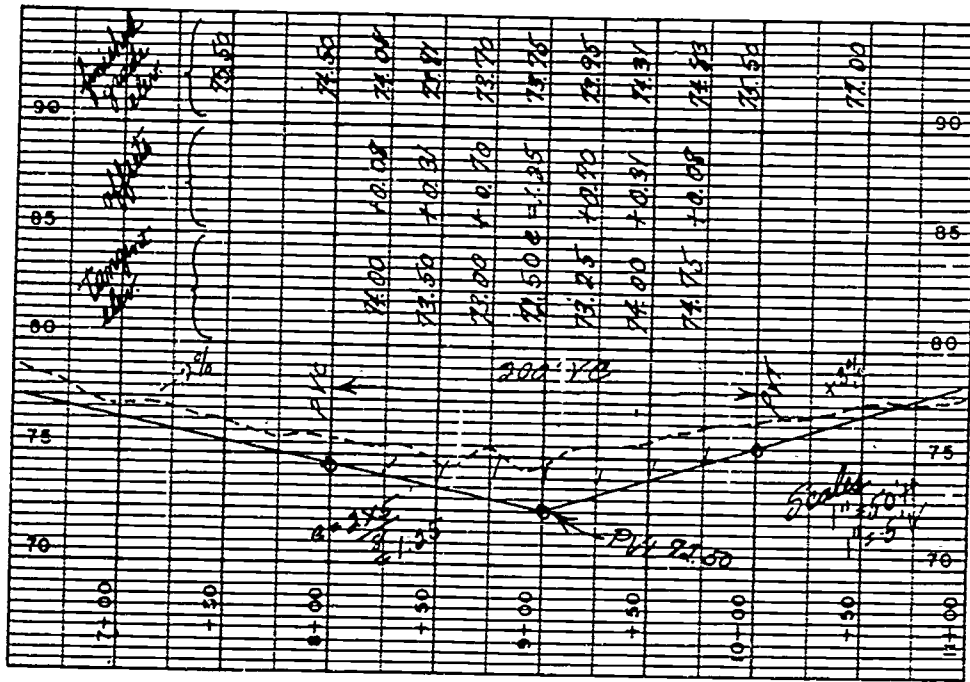 Finished grade elev.
75.50
74.50
74.08
73.81
73.70
73.75
73.95
74.31
74.83
75.50
77.00
90
90
Offsets
+0.08
+0.31
+0.70
e = 1.25
+0.70
+0.31
+0.08
85
85
Tangent elev.
74.00
73.50
73.00
72.50
73.25
74.00
74.75
80
80
PVC
200' VC
PVT
75
75
PVI 72.50
Scales
1" = 50' H
1" = 5' V
70
70
7+00
+50
8+00
+50
9+00
+50
10+00
+50
11+00